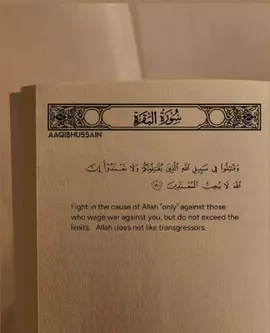 سُورَةُ البَقَرَة
AAQIBHUSSAIN
وَقَٰتِلُوا۟ فِى سَبِيلِ ٱللَّهِ ٱلَّذِينَ يُقَٰتِلُونَكُمْ وَلَا تَعْتَدُوٓا۟ إِنَّ
ٱللَّهَ لَا يُحِبُّ ٱلْمُعْتَدِينَ
Fight in the cause of Allah 'only' against those
who wage war against you, but do not exceed the
limits. Allah does not like transgressors.